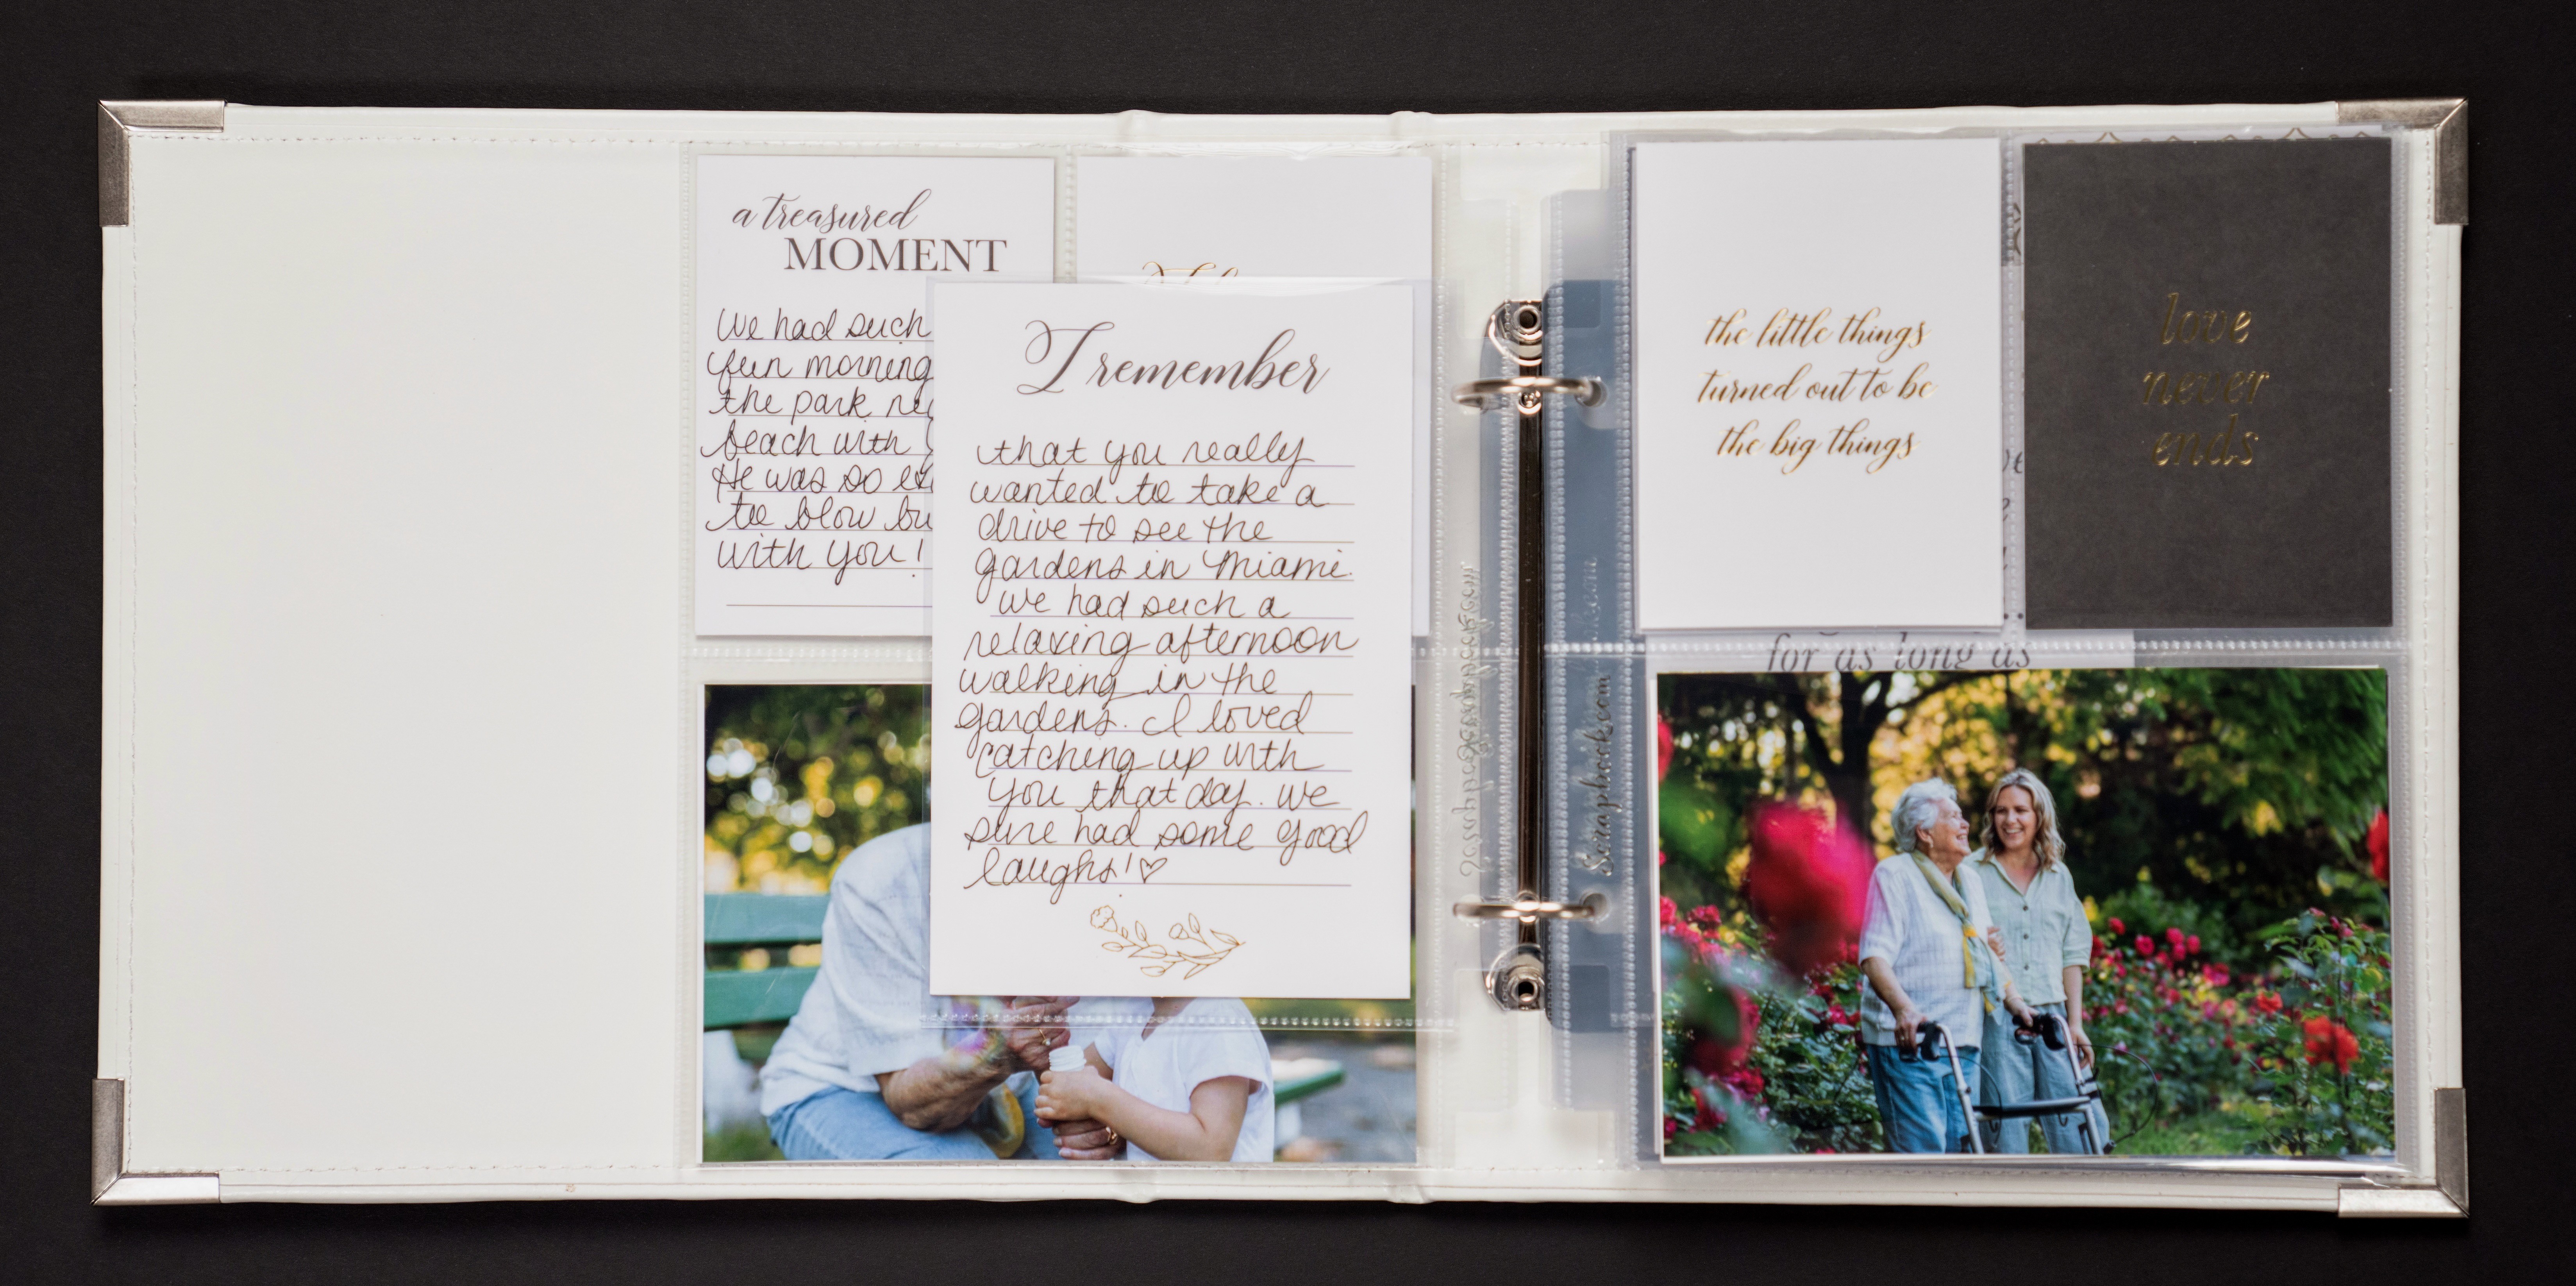 a treasured
MOMENT
We had such
fun morning
the park
beach with
He was so
to blow
with you!
I remember
that you really
wanted to take a
drive to see the
gardens in Miami.
we had such a
relaxing afternoon
walking in the
gardens. I loved
catching up with
you that day. we
sure had some good
laughs! ♡
Scrapbook.com
Scrapbook.com
the little things
turned out to be
the big things
love
never
ends
for as long as